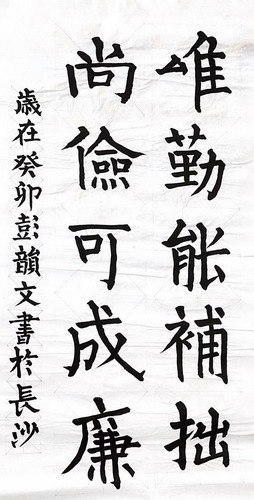 唯勤能補拙
尚儉可成廉
歲在癸卯彭韻文書於長沙